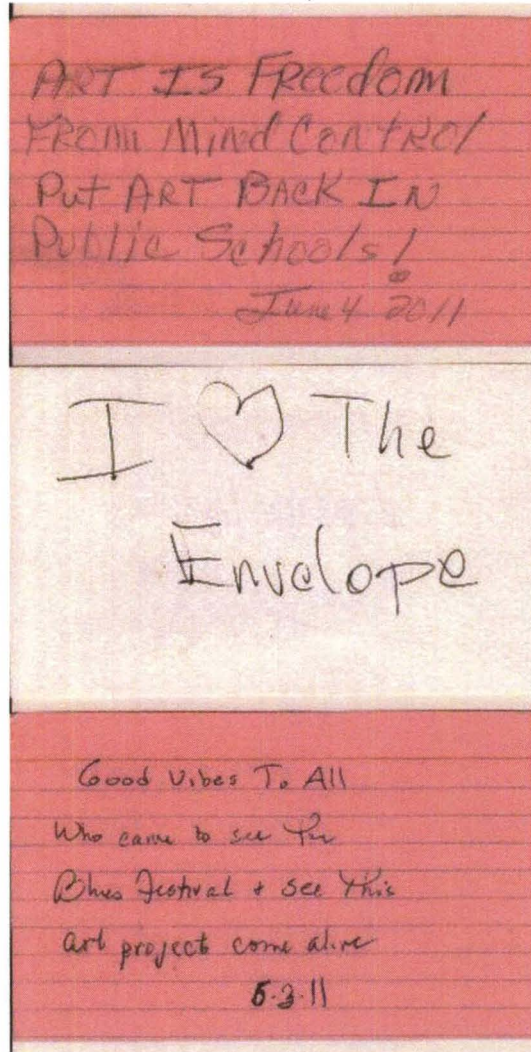 ART IS FReedom
FROM Mind CONTROl
Put ART BACK IN
Public Schools!
June 4 2011
I ♡ The
Envelope
Good Vibes To All
Who came to see The
Blues Festival + see This
art project come alive
6.3.11